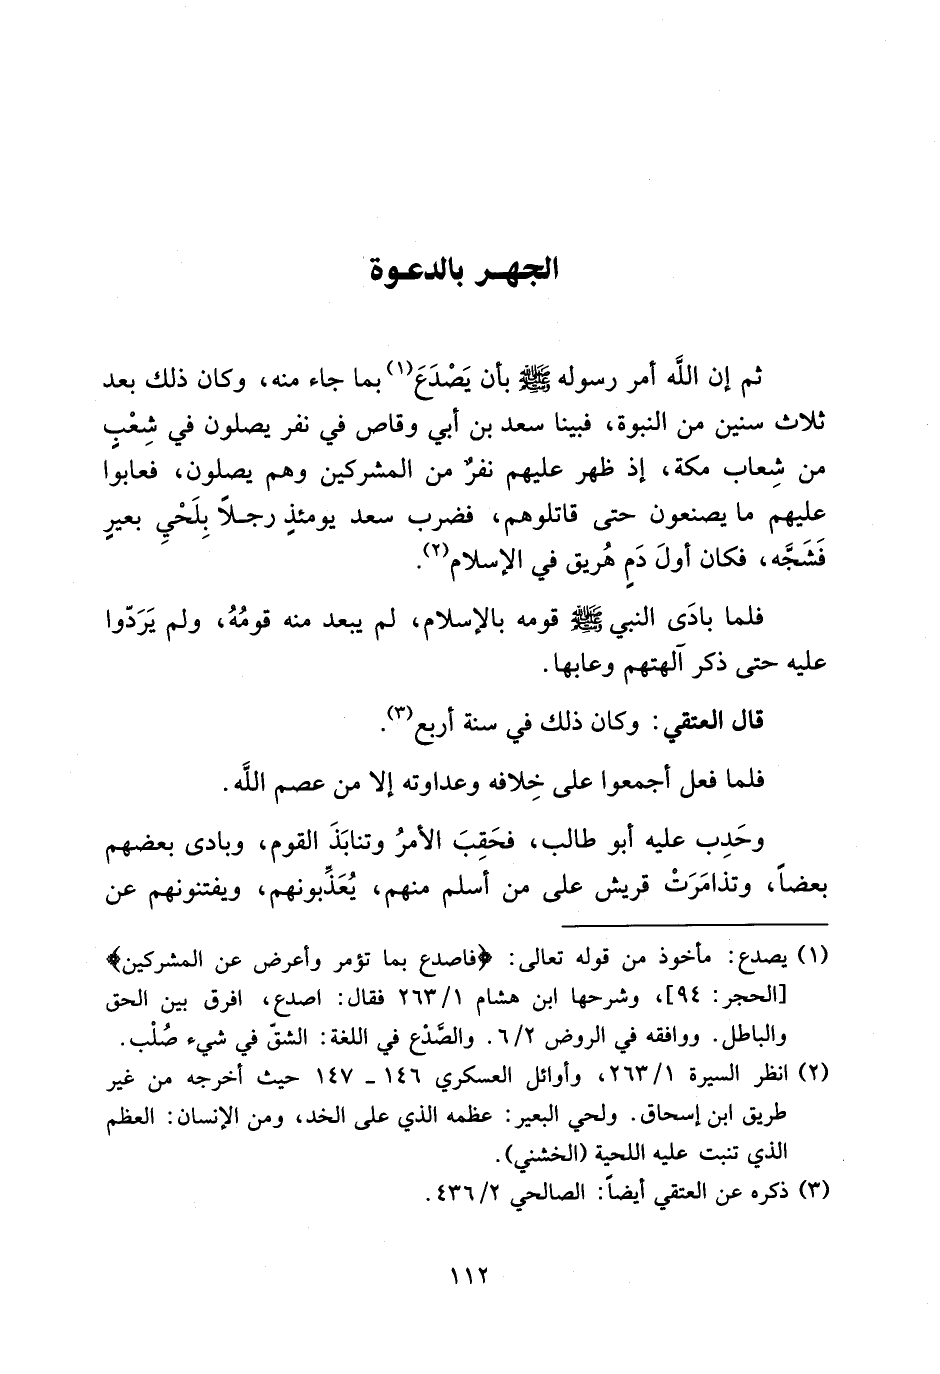 الجهر بالدعوة
ثم إن اللَّه أمر رسوله ﷺ بأن يَصْدَعَ(١) بما جاء منه، وكان ذلك بعد
ثلاث سنين من النبوة، فبينا سعد بن أبي وقاص في نفر يصلون في شِعْبٍ
من شِعاب مكة، إذ ظهر عليهم نفرٌ من المشركين وهم يصلون، فعابوا
عليهم ما يصنعون حتى قاتلوهم، فضرب سعد يومئذٍ رجلاً بِلَحْيِ بعيرٍ
فَشَجَّه، فكان أولَ دَمٍ هُريق في الإسلام(٢).
فلما بادَى النبي ﷺ قومه بالإسلام، لم يبعد منه قومُهُ، ولم يَرَدّوا
عليه حتى ذكر آلهتهم وعابها.
قال العتقي: وكان ذلك في سنة أربع(٣).
فلما فعل أجمعوا على خِلافه وعداوته إلا من عصم اللَّه.
وحَدِب عليه أبو طالب، فحَقِبَ الأمرُ وتنابَذَ القوم، وبادى بعضهم
بعضاً، وتذامَرَتْ قريش على من أسلم منهم، يُعَذِّبونهم، ويفتنونهم عن
(١) يصدع: مأخوذ من قوله تعالى: ﴿فاصدع بما تؤمر وأعرض عن المشركين﴾
[الحجر: ٩٤]، وشرحها ابن هشام ٢٦٣/١ فقال: اصدع، افرق بين الحق
والباطل. ووافقه في الروض ٦/٢. والصَّدْع في اللغة: الشقّ في شيء صُلْب.
(٢) انظر السيرة ٢٦٣/١، وأوائل العسكري ١٤٦ - ١٤٧ حيث أخرجه من غير
طريق ابن إسحاق. ولحي البعير: عظمه الذي على الخد، ومن الإنسان: العظم
الذي تنبت عليه اللحية (الخشني).
(٣) ذكره عن العتقي أيضاً: الصالحي ٤٣٦/٢.
١١٢